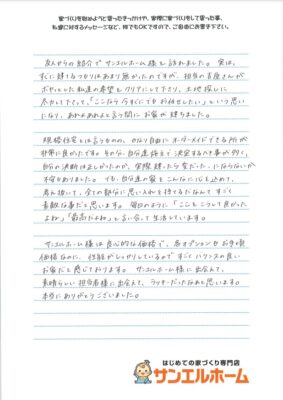 家づくりを始めようと思ったきっかけや、実際に家づくりをして思った事、
私達に対するメッセージなど、何でもOKですので、ご自由にお書き下さい。
友人からの紹介でサンエルホーム様を訪れました。実は、
すぐに建てるつもりはあまり無かったのですが、担当の
ボヤッとした私達の希望をクリアにして下さり、土地探しに
尽力して下さって、「ここなら今すぐにでもお任せしたい」という思い
になり、あれよあれよと言う間にお家が建ちました。
規格住宅とは言うものの、かなり自由にオーダーメイドできる所が
非常に良かったです。その分、自分達で決定する事が多く、
自分の決断は正しかったのか、実際建ったら変だった...にならないか
不安もありました。でも、自分達の家をこんなに心を込めて、
考え抜いて、全ての部分に思い入れを持てるだなんてすごく
素敵な事だと思います。毎日のように「ここもこうして良かった
よね」「最高だよね」と言い合って生活しています。
サンエルホーム様は良心的な価格で、各オプションもお手頃
価格なのに、性能がしっかりしているのですごくバランスの良い
お家だと感じております。サンエルホーム様に出会えて、
素晴らしい担当者様に出会えて、ラッキーだったなぁと思います。
本当にありがとうございました。
はじめての家づくり専門店
サンエルホーム